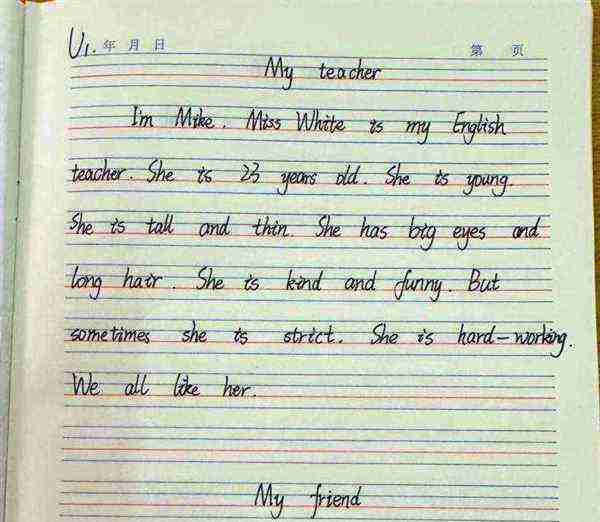 U1. 年 月 日 第 页
My teacher
I'm Mike. Miss White is my English
teacher. She is 23 years old. She is young.
She is tall and thin. She has big eyes and
long hair. She is kind and funny. But
sometimes she is strict. She is hard-working.
We all like her.
My friend